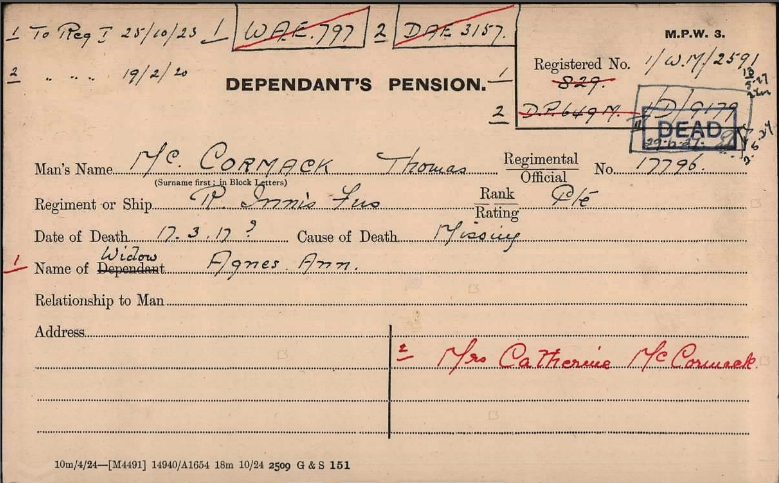 1 To Reg I 25/10/23 1 W.A.E. 797 2 DAE 3157.
M.P.W. 3.
2 " . . " 19/2/20
Registered No. 1/W.M/2591
829.
DEPENDANT'S PENSION. 1
2 D.P. 649 M. D/9179
DEAD
Man's Name Mc. CORMACK Thomas Regimental Official No. 17796.
(Surname first; in Block Letters)
Regiment or Ship R. Innis Fus Rank Rating Pte
Date of Death 17.3.17 ? Cause of Death Missing
Widow
1 Name of Dependant Agnes Ann.
Relationship to Man
Address
2 Mrs Catherine McCormack.
10m/4/24—[M4491] 14940/A1654 18m 10/24 2509 G & S 151